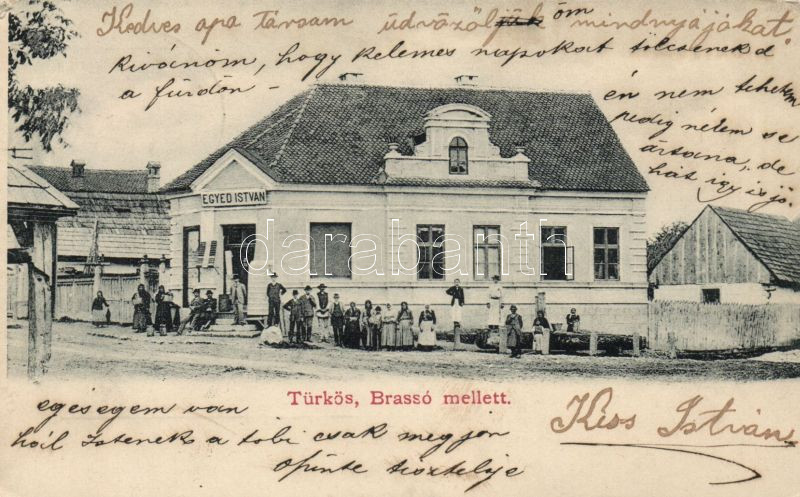 Kedves apa társam üdvözöljük öm mindnyájókat.
Kivánom, hogy kelemes napokat tölcsenek
a fürdön -
én nem tehetem
pedig nékem se
ártana, de
hát így is jó.
EGYED ISTVÁN
darabanth.com
Türkös, Brassó mellett.
egésegem van
hál Istenek a többi csak megjön
Kiss István
őszinte tisztelője